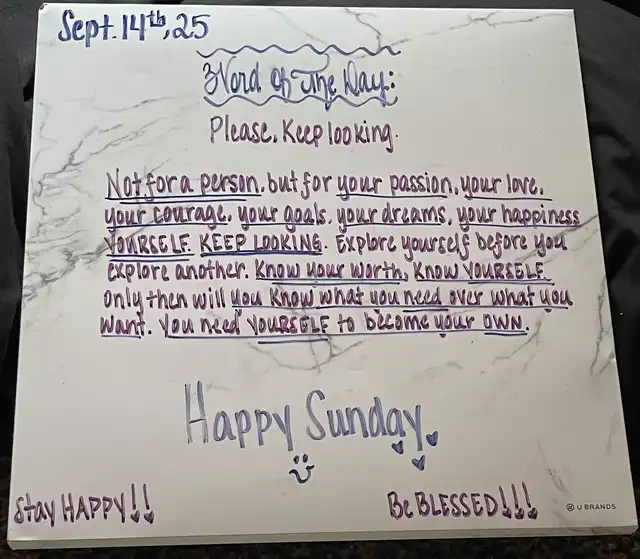 Sept. 14th, 25
Word Of The Day:
Please, Keep looking.
Not for a person, but for your passion, your love,
your courage, your goals, your dreams, your happiness
YOURSELF. KEEP LOOKING. Explore yourself before you
explore another. Know your worth, Know YOURSELF.
only then will you know what you need over what you
want. You need YOURSELF to become your OWN.
Happy Sunday
Stay HAPPY!!
Be BLESSED!!!
U BRANDS